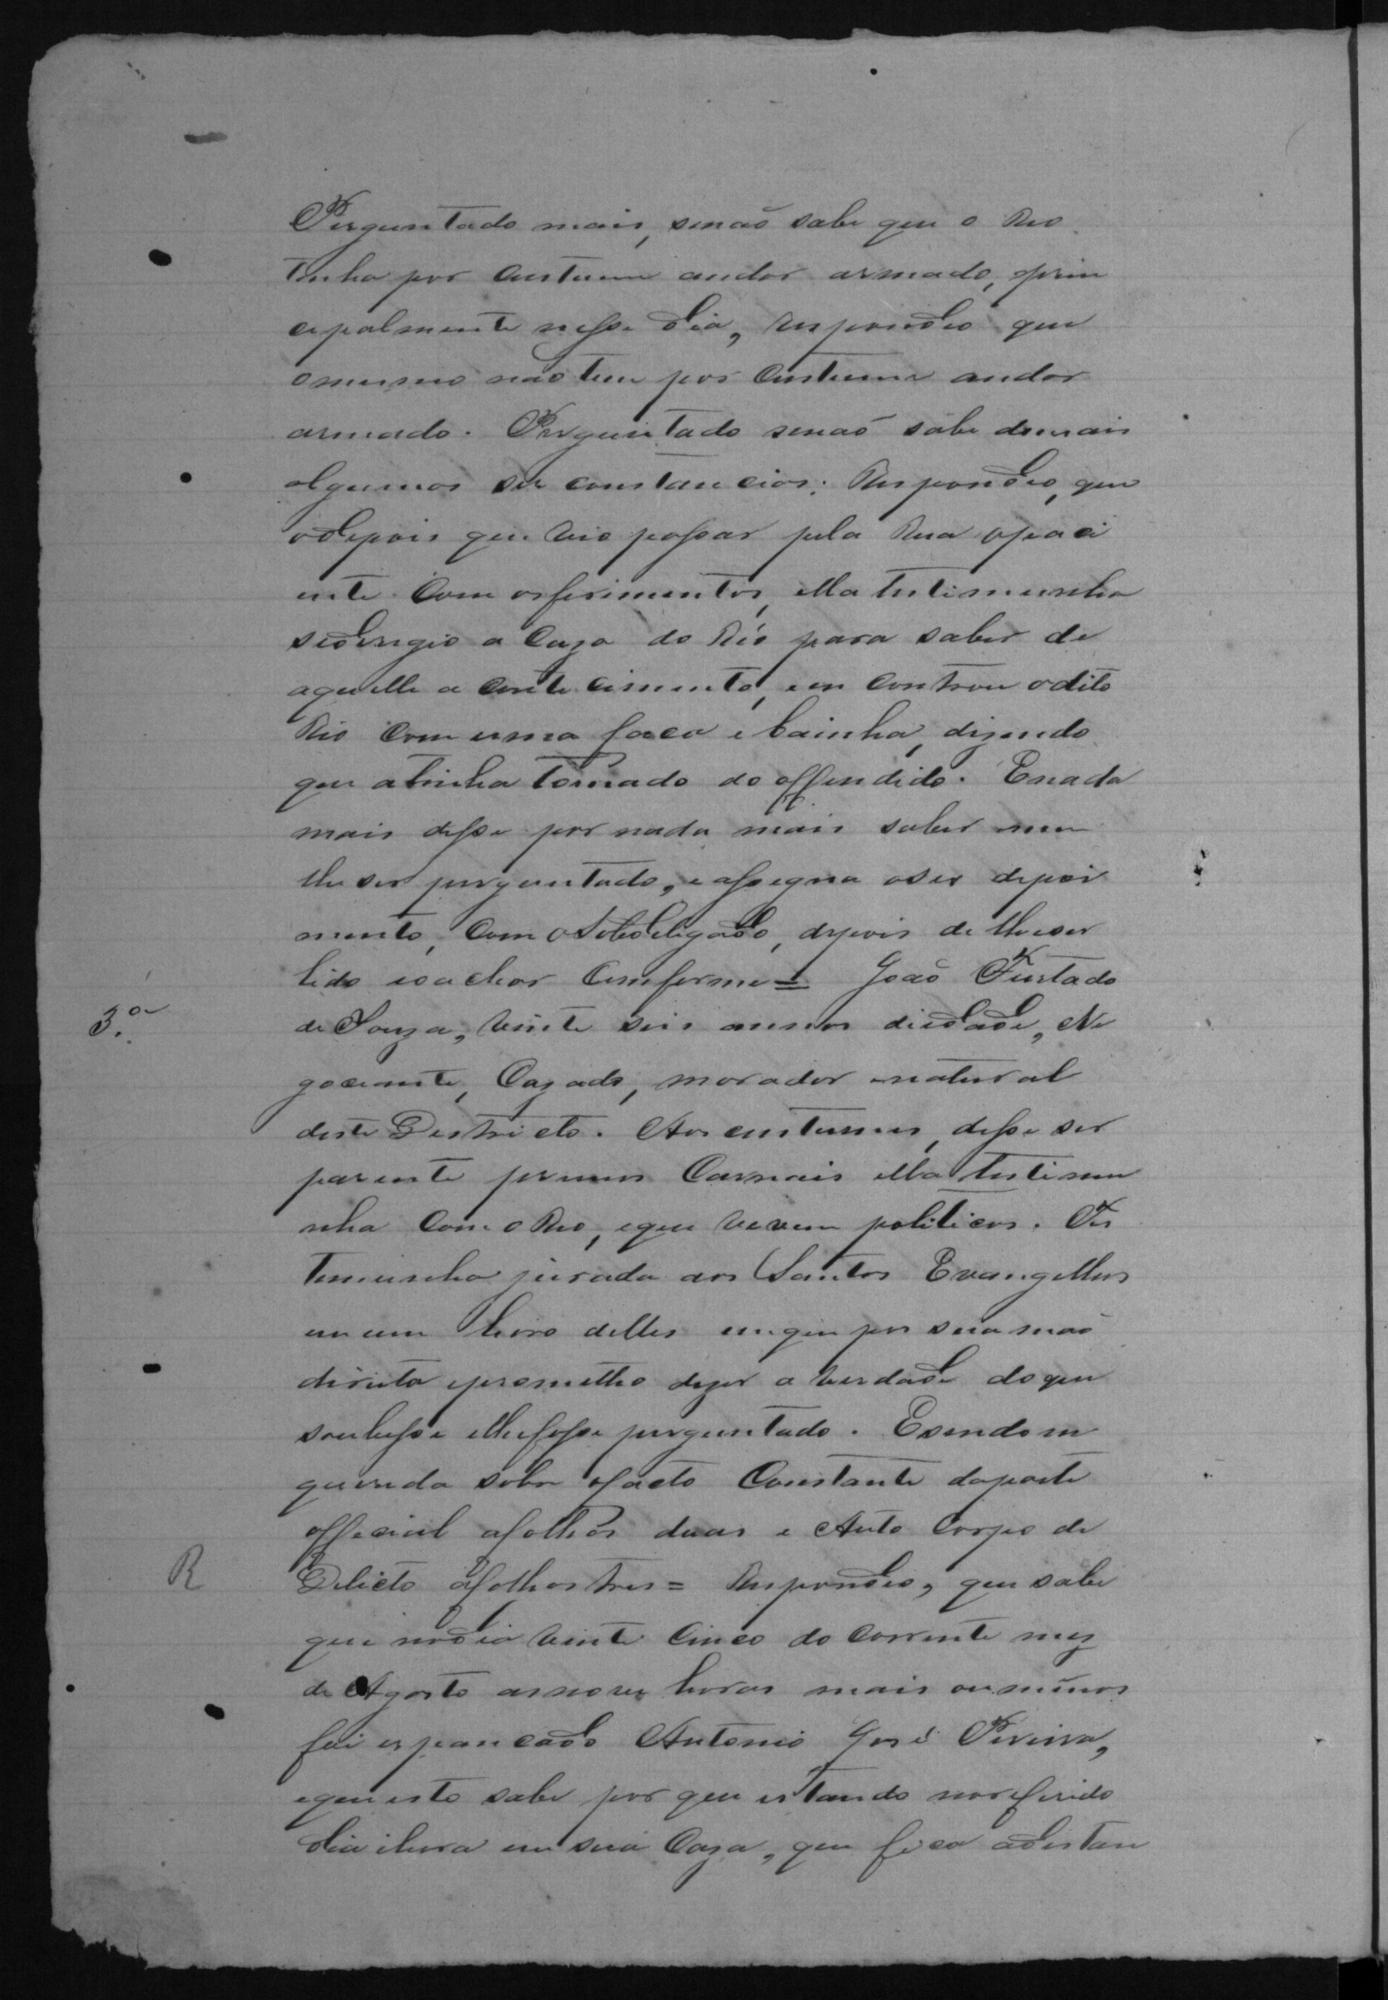 Perguntado mais, senaõ sabe que o Reo
tinha por custume andar armado, eprin
cipalmente nesse dia, respondeo que
omesmo naõ tem por custume andar
armado. Perguntado senaõ sabe demais
algumas sir constancias: Respondeo, que
odepois que vio passar pela Rua opaci
ente com osferimentos, ella testimunha
sederigio a Caza do Réo para saber de
aquelle a conte cimento, e en controu odito
Réo com uma faca e bainha, dizendo
que atinha tomado do offendido. Enada
mais disse por nada mais saber nem
lhe ser perguntado, e assegna oseu depoi
mento, com oSubdelegado, depois de lheser
lido eoachar conforme = João Furtado
3.a de Souza, vinte seis annos deidade, Ne
gociante, Cazado, morador enatural
deste Destricto. Aos custumes, disse ser
parente primos Carnais ella testimu
nha com o Reo, eque vevem politicos. Tes
temunha jurada aos Santos Evangelhos
em um livro delles emque pos sua maõ
direita eprometteo dizer a verdade doque
soubesse elhefosse perguntado. Esendo in
querida sobre ofacto Constante daparte
official afolhas duas e Auto Corpo de
R Delicto afolhas tres = Respondeo, que sabe
que nodia vinte cinco do corrente mez
de Agosto asnove horas mais oumenos
foi espancado Antonio José Pereira,
equeisto sabe por que estando noreferido
dia ehora em sua Caza, que fica adestan